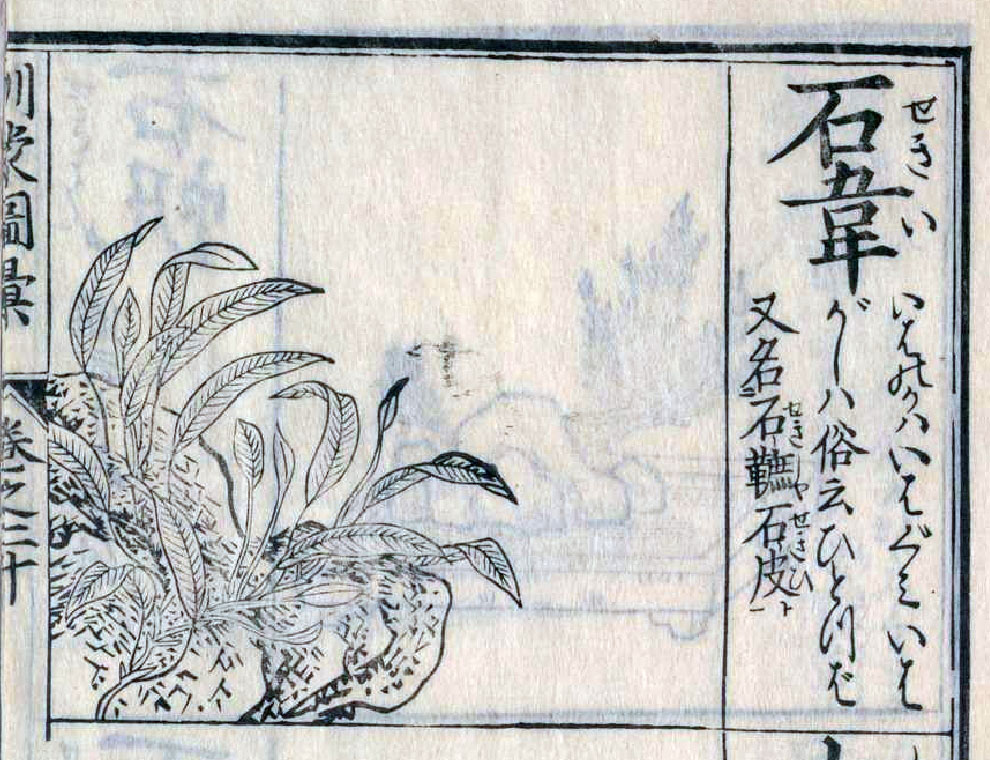 せきい
石韋
いはのかハいはぐミいは
がしハ俗云ひとつば
せきしや せきひト
又名石䩾石皮
訓蒙圖彙
卷之二十